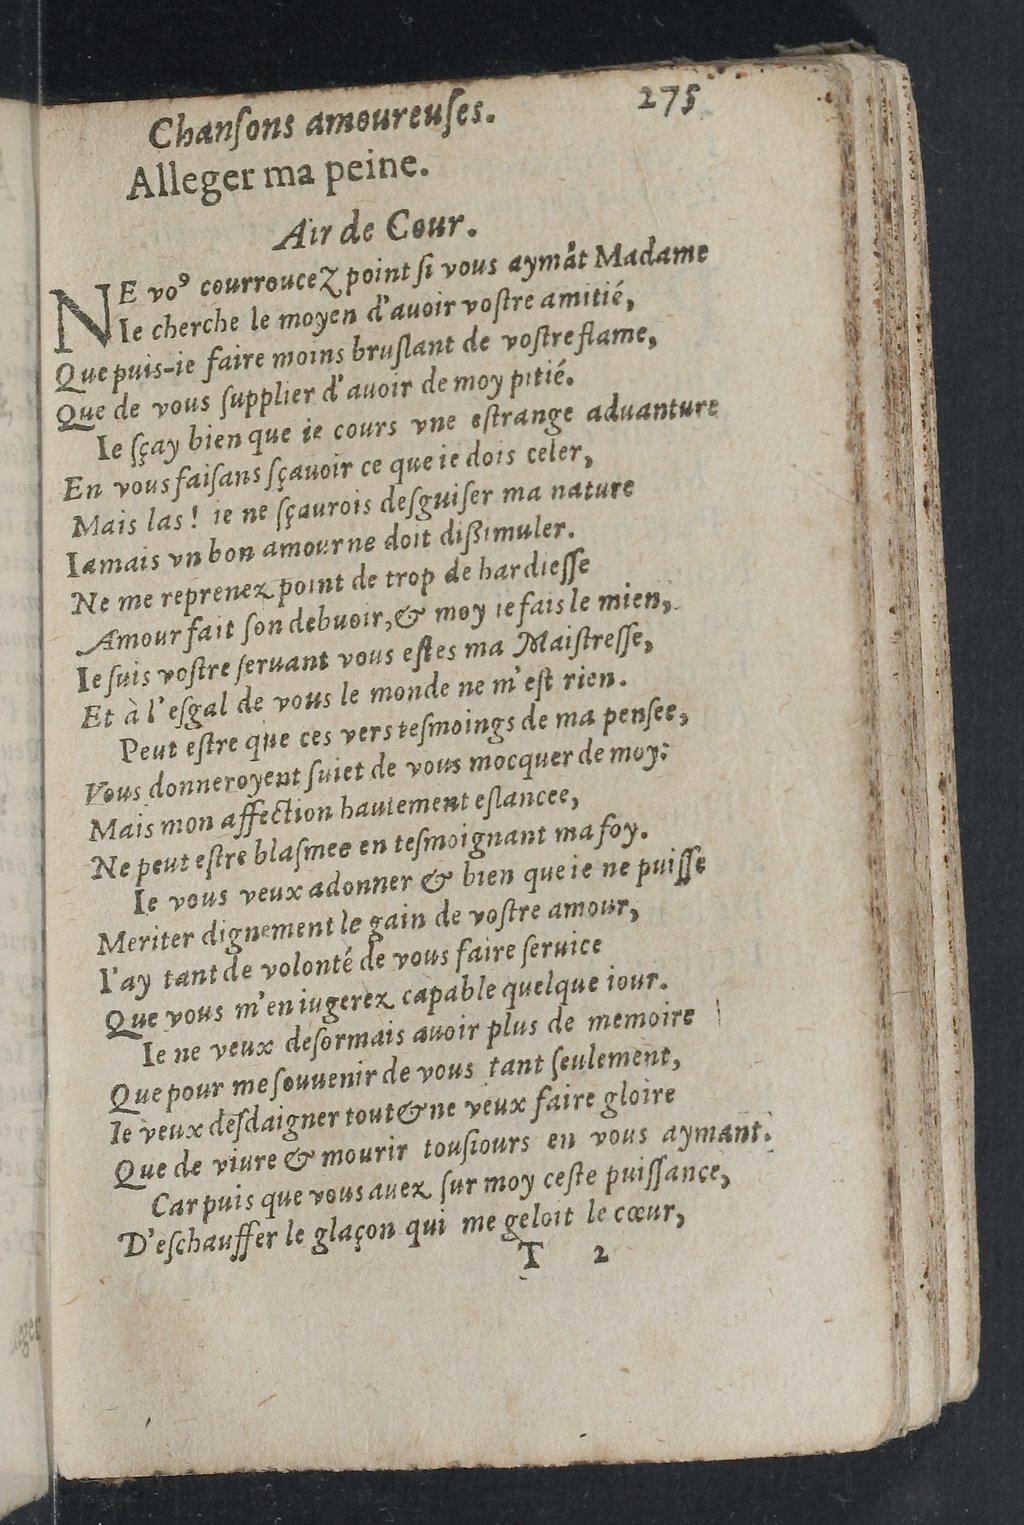 Chanſons amoureuſes. 275
Alleger ma peine.
Air de Cour.
NE voꝰ courroucez point ſi vous aymãt Madame
Ie cherche le moyen d'auoir voſtre amitié,
Que puis-ie faire moins bruſlant de voſtre flame,
Que de vous ſupplier d'auoir de moy pitié.
Ie ſçay bien que ie cours vne eſtrange aduanture
En vous faiſans ſçauoir ce que ie dois celer,
Mais las! ie ne ſçaurois deſguiſer ma nature
Iamais vn bon amour ne doit dißimuler.
Ne me reprenez point de trop de hardieſſe
Amour fait ſon debuoir, & moy ie fais le mien,
Ie ſuis voſtre ſeruant vous eſtes ma Maiſtreſſe,
Et à l'eſgal de vous le monde ne m'eſt rien.
Peut eſtre que ces vers teſmoings de ma penſee,
Vous donneroyent ſuiet de vous mocquer de moy:
Mais mon affection hautement eſlancee,
Ne peut eſtre blaſmee en teſmoignant ma foy.
Ie vous veux adonner & bien que ie ne puiſſe
Meriter dignement le gain de voſtre amour,
I'ay tant de volonté de vous faire ſeruice
Que vous m'en iugerez capable quelque iour.
Ie ne veux deſormais auoir plus de memoire
Que pour me ſouuenir de vous tant ſeulement,
Ie veux deſdaigner tout & ne veux faire gloire
Que de viure & mourir touſiours en vous aymant.
Car puis que vous auez ſur moy ceſte puiſſance,
D'eſchauffer le glaçon qui me geloit le cœur,
T 2